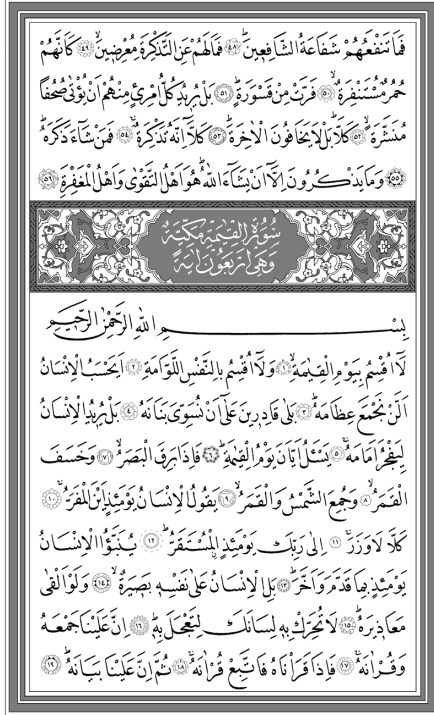 فَمَا تَنْفَعُهُمْ شَفَاعَةُ الشَّافِع۪ينَۜ ﴿٤٨﴾ فَمَا لَهُمْ عَنِ التَّذْكِرَةِ مُعْرِض۪ينَۙ ﴿٤٩﴾ كَاَنَّهُمْ
حُمُرٌ مُسْتَنْفِرَةٌۙ ﴿٥٠﴾ فَرَّتْ مِنْ قَسْوَرَةٍۜ ﴿٥١﴾ بَلْ يُر۪يدُ كُلُّ امْرِئٍ مِنْهُمْ اَنْ يُؤْتٰى صُحُفًا
مُنَشَّرَةًۙ ﴿٥٢﴾ كَلَّاۜ بَلْ لَا يَخَافُونَ الْاٰخِرَةَۜ ﴿٥٣﴾ كَلَّٓا اِنَّهُ تَذْكِرَةٌۚ ﴿٥٤﴾ فَمَنْ شَٓاءَ ذَكَرَهُۜ
﴿٥٥﴾ وَمَا يَذْكُرُونَ اِلَّٓا اَنْ يَشَٓاءَ اللّٰهُۜ هُوَ اَهْلُ التَّقْوٰى وَاَهْلُ الْمَغْفِرَةِ ﴿٥٦﴾
سُورَةُ الْقِيٰمَةِ مَكِّيَّةٌ
وَهِيَ اَرْبَعُونَ اٰيَةً
بِسْمِ اللّٰهِ الرَّحْمٰنِ الرَّح۪يمِ
لَٓا اُقْسِمُ بِيَوْمِ الْقِيٰمَةِۙ ﴿١﴾ وَلَٓا اُقْسِمُ بِالنَّفْسِ اللَّوَّامَةِ ﴿٢﴾ اَيَحْسَبُ الْاِنْسَانُ
اَلَّنْ نَجْمَعَ عِظَامَهُۜ ﴿٣﴾ بَلٰى قَادِر۪ينَ عَلٰٓى اَنْ نُسَوِّيَ بَنَانَهُ ﴿٤﴾ بَلْ يُر۪يدُ الْاِنْسَانُ
لِيَفْجُرَ اَمَامَهُۚ ﴿٥﴾ يَسْـَٔلُ اَيَّانَ يَوْمُ الْقِيٰمَةِۜ ﴿٦﴾ فَاِذَا بَرِقَ الْبَصَرُۙ ﴿٧﴾ وَخَسَفَ
الْقَمَرُۙ ﴿٨﴾ وَجُمِعَ الشَّمْسُ وَالْقَمَرُۙ ﴿٩﴾ يَقُولُ الْاِنْسَانُ يَوْمَئِذٍ اَيْنَ الْمَفَرُّۚ ﴿١٠﴾
كَلَّا لَا وَزَرَۜ ﴿١١﴾ اِلٰى رَبِّكَ يَوْمَئِذٍۨ الْمُسْتَقَرُّۜ ﴿١٢﴾ يُنَبَّؤُا الْاِنْسَانُ
يَوْمَئِذٍ بِمَا قَدَّمَ وَاَخَّرَۜ ﴿١٣﴾ بَلِ الْاِنْسَانُ عَلٰى نَفْسِه۪ بَص۪يرَةٌۙ ﴿١٤﴾ وَلَوْ اَلْقٰى
مَعَاذ۪يرَهُۜ ﴿١٥﴾ لَا تُحَرِّكْ بِه۪ لِسَانَكَ لِتَعْجَلَ بِه۪ۜ ﴿١٦﴾ اِنَّ عَلَيْنَا جَمْعَهُ
وَقُرْاٰنَهُۚ ﴿١٧﴾ فَاِذَا قَرَأْنَاهُ فَاتَّبِعْ قُرْاٰنَهُۚ ﴿١٨﴾ ثُمَّ اِنَّ عَلَيْنَا بَيَانَهُۜ ﴿١٩﴾